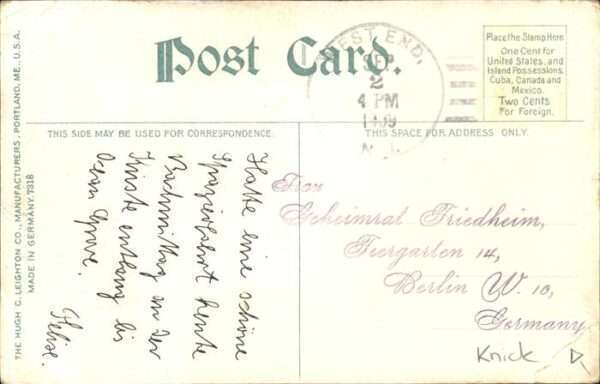 THE HUGH C. LEIGHTON CO., MANUFACTURERS, PORTLAND, ME., U.S.A.
MADE IN GERMANY. 7318
Post Card.
WEST END,
2
4 PM
1909
N.J.
Place the Stamp Here
One Cent for
United States, and
Island Possessions,
Cuba, Canada and
Mexico.
Two Cents
For Foreign.
THIS SIDE MAY BE USED FOR CORRESPONDENCE.
THIS SPACE FOR ADDRESS ONLY.
Hatte eine schöne
Spazierfahrt heute
Nachmittag an der
Küste entlang bis
Grove.
Frau
Geheimrat Friedheim,
Tiergarten 14,
Berlin W. 10,
Germany
Knick